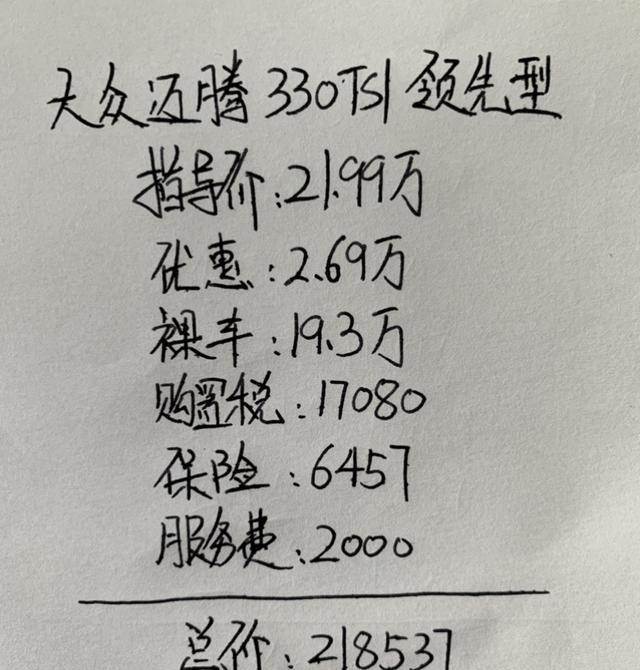 大众迈腾330TSI领先型
指导价:21.99万
优惠:2.69万
裸车:19.3万
购置税:17080
保险:6457
服务费:2000
总价:218537